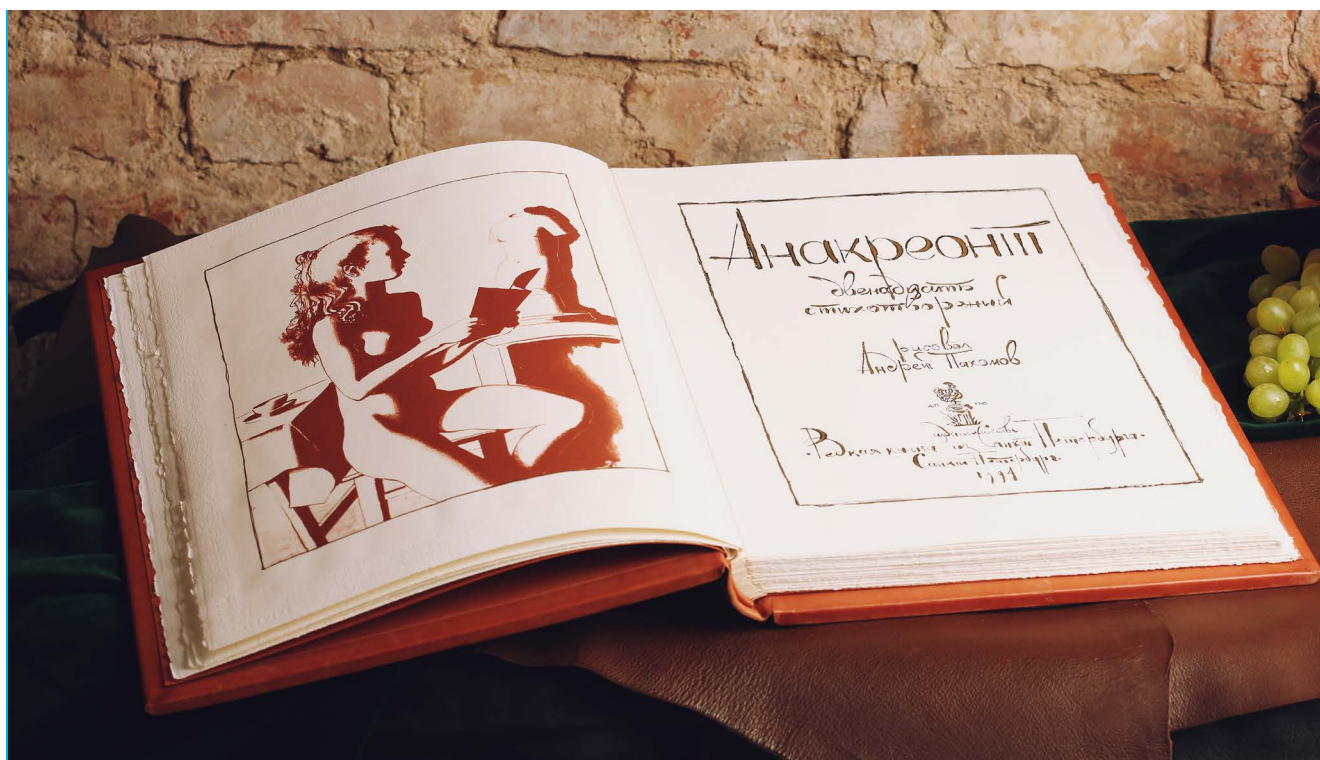 Анакреонт
двенадцать
стихотворений
рисовал
Андрей Пахомов
издательство
Редкая книга из Санкт-Петербурга
Санкт-Петербург